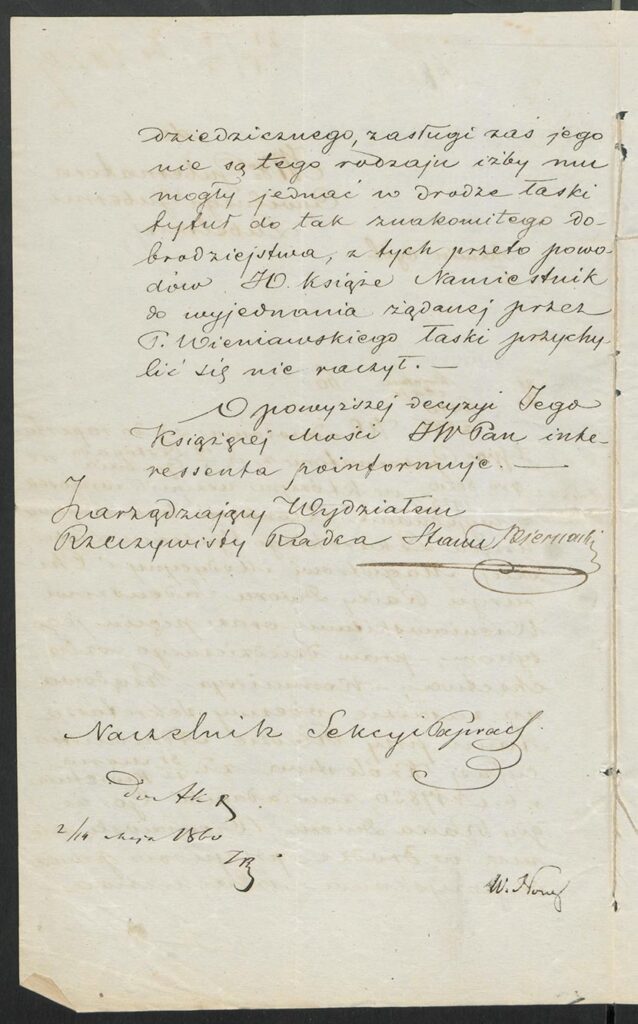 dziedzicznego, zasługi zaś jego
nie są tego rodzaju iżby mu
mogły jednać w drodze łaski
tytuł do tak znakomitego do-
brodziejstwa, z tych przeto powo-
dów JO. Książe Namiestnik
do wyjednania żądanej przez
P. Wieniawskiego łaski przychy-
lić się nie raczył. —
O powyższej decyzyi Jego
Książęcej Mości JW Pan inte-
ressenta poinformuje. —
Zarządzający Wydziałem
Rzeczywisty Radca Stanu
Naczelnik Sekcyi Paprocki
Do Akt
2/14 Maja 1860